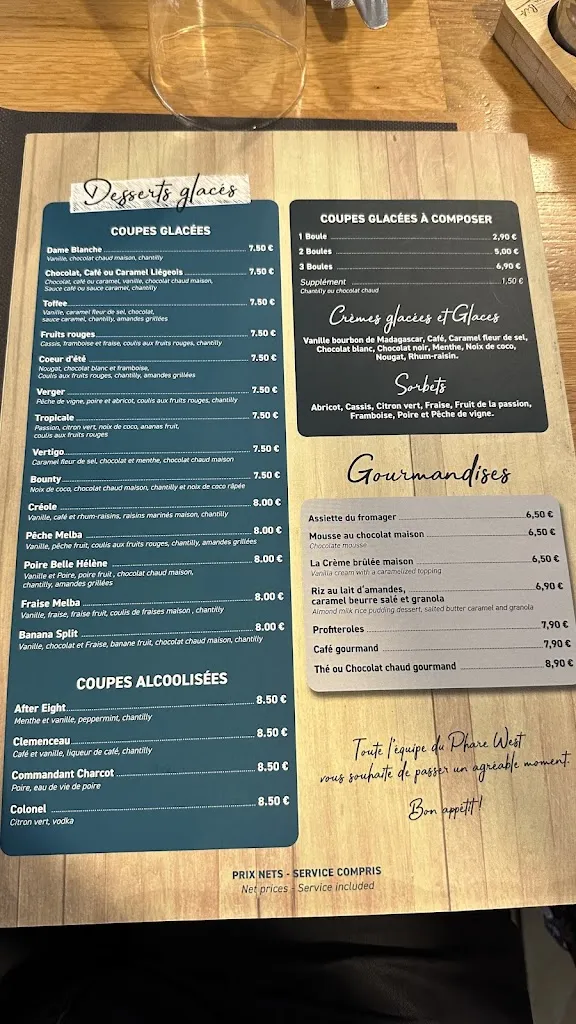 Desserts glacés
COUPES GLACÉES
Dame Blanche 7.50 €
Vanille, chocolat chaud maison, chantilly
Chocolat, Café ou Caramel Liégeois 7.50 €
Chocolat, café ou caramel, vanille, chocolat chaud maison,
Sauce café ou sauce caramel, chantilly
Toffee 7.50 €
Vanille, caramel fleur de sel, chocolat,
sauce caramel, chantilly, amandes grillées
Fruits rouges 7.50 €
Cassis, framboise et fraise, coulis aux fruits rouges, chantilly
Coeur d'été 7.50 €
Nougat, chocolat blanc et framboise,
Coulis aux fruits rouges, chantilly, amandes grillées
Verger 7.50 €
Pêche de vigne, poire et abricot, coulis aux fruits rouges, chantilly
Tropicale 7.50 €
Passion, citron vert, noix de coco, ananas fruit,
coulis aux fruits rouges
Vertigo 7.50 €
Caramel fleur de sel, chocolat et menthe, chocolat chaud maison
Bounty 7.50 €
Noix de coco, chocolat chaud maison, chantilly et noix de coco râpée
Créole 8.00 €
Vanille, café et rhum-raisins, raisins marinés maison, chantilly
Pêche Melba 8.00 €
Vanille, pêche fruit, coulis aux fruits rouges, chantilly, amandes grillées
Poire Belle Hélène 8.00 €
Vanille et Poire, poire fruit, chocolat chaud maison,
chantilly, amandes grillées
Fraise Melba 8.00 €
Vanille, fraise, fraise fruit, coulis de fraises maison , chantilly
Banana Split 8.00 €
Vanille, chocolat et Fraise, banane fruit, chocolat chaud maison, chantilly
COUPES ALCOOLISÉES
After Eight 8.50 €
Menthe et vanille, peppermint, chantilly
Clemenceau 8.50 €
Café et vanille, liqueur de café, chantilly
Commandant Charcot 8.50 €
Poire, eau de vie de poire
Colonel 8.50 €
Citron vert, vodka
COUPES GLACÉES À COMPOSER
1 Boule 2,90 €
2 Boules 5,00 €
3 Boules 6,90 €
Supplément 1,50 €
Chantilly ou chocolat chaud
Crèmes glacées et Glaces
Vanille bourbon de Madagascar, Café, Caramel fleur de sel,
Chocolat blanc, Chocolat noir, Menthe, Noix de coco,
Nougat, Rhum-raisin.
Sorbets
Abricot, Cassis, Citron vert, Fraise, Fruit de la passion,
Framboise, Poire et Pêche de vigne.
Gourmandises
Assiette du fromager 6,50 €
Mousse au chocolat maison 6,50 €
Chocolate mousse
La Crème brûlée maison 6,50 €
Vanilla cream with a caramelized topping
Riz au lait d'amandes,
caramel beurre salé et granola 6,90 €
Almond milk rice pudding dessert, salted butter caramel and granola
Profiteroles 7,90 €
Café gourmand 7,90 €
Thé ou Chocolat chaud gourmand 8,90 €
Toute l'équipe du Phare West
vous souhaite de passer un agréable moment.
Bon appétit !
PRIX NETS - SERVICE COMPRIS
Net prices - Service included